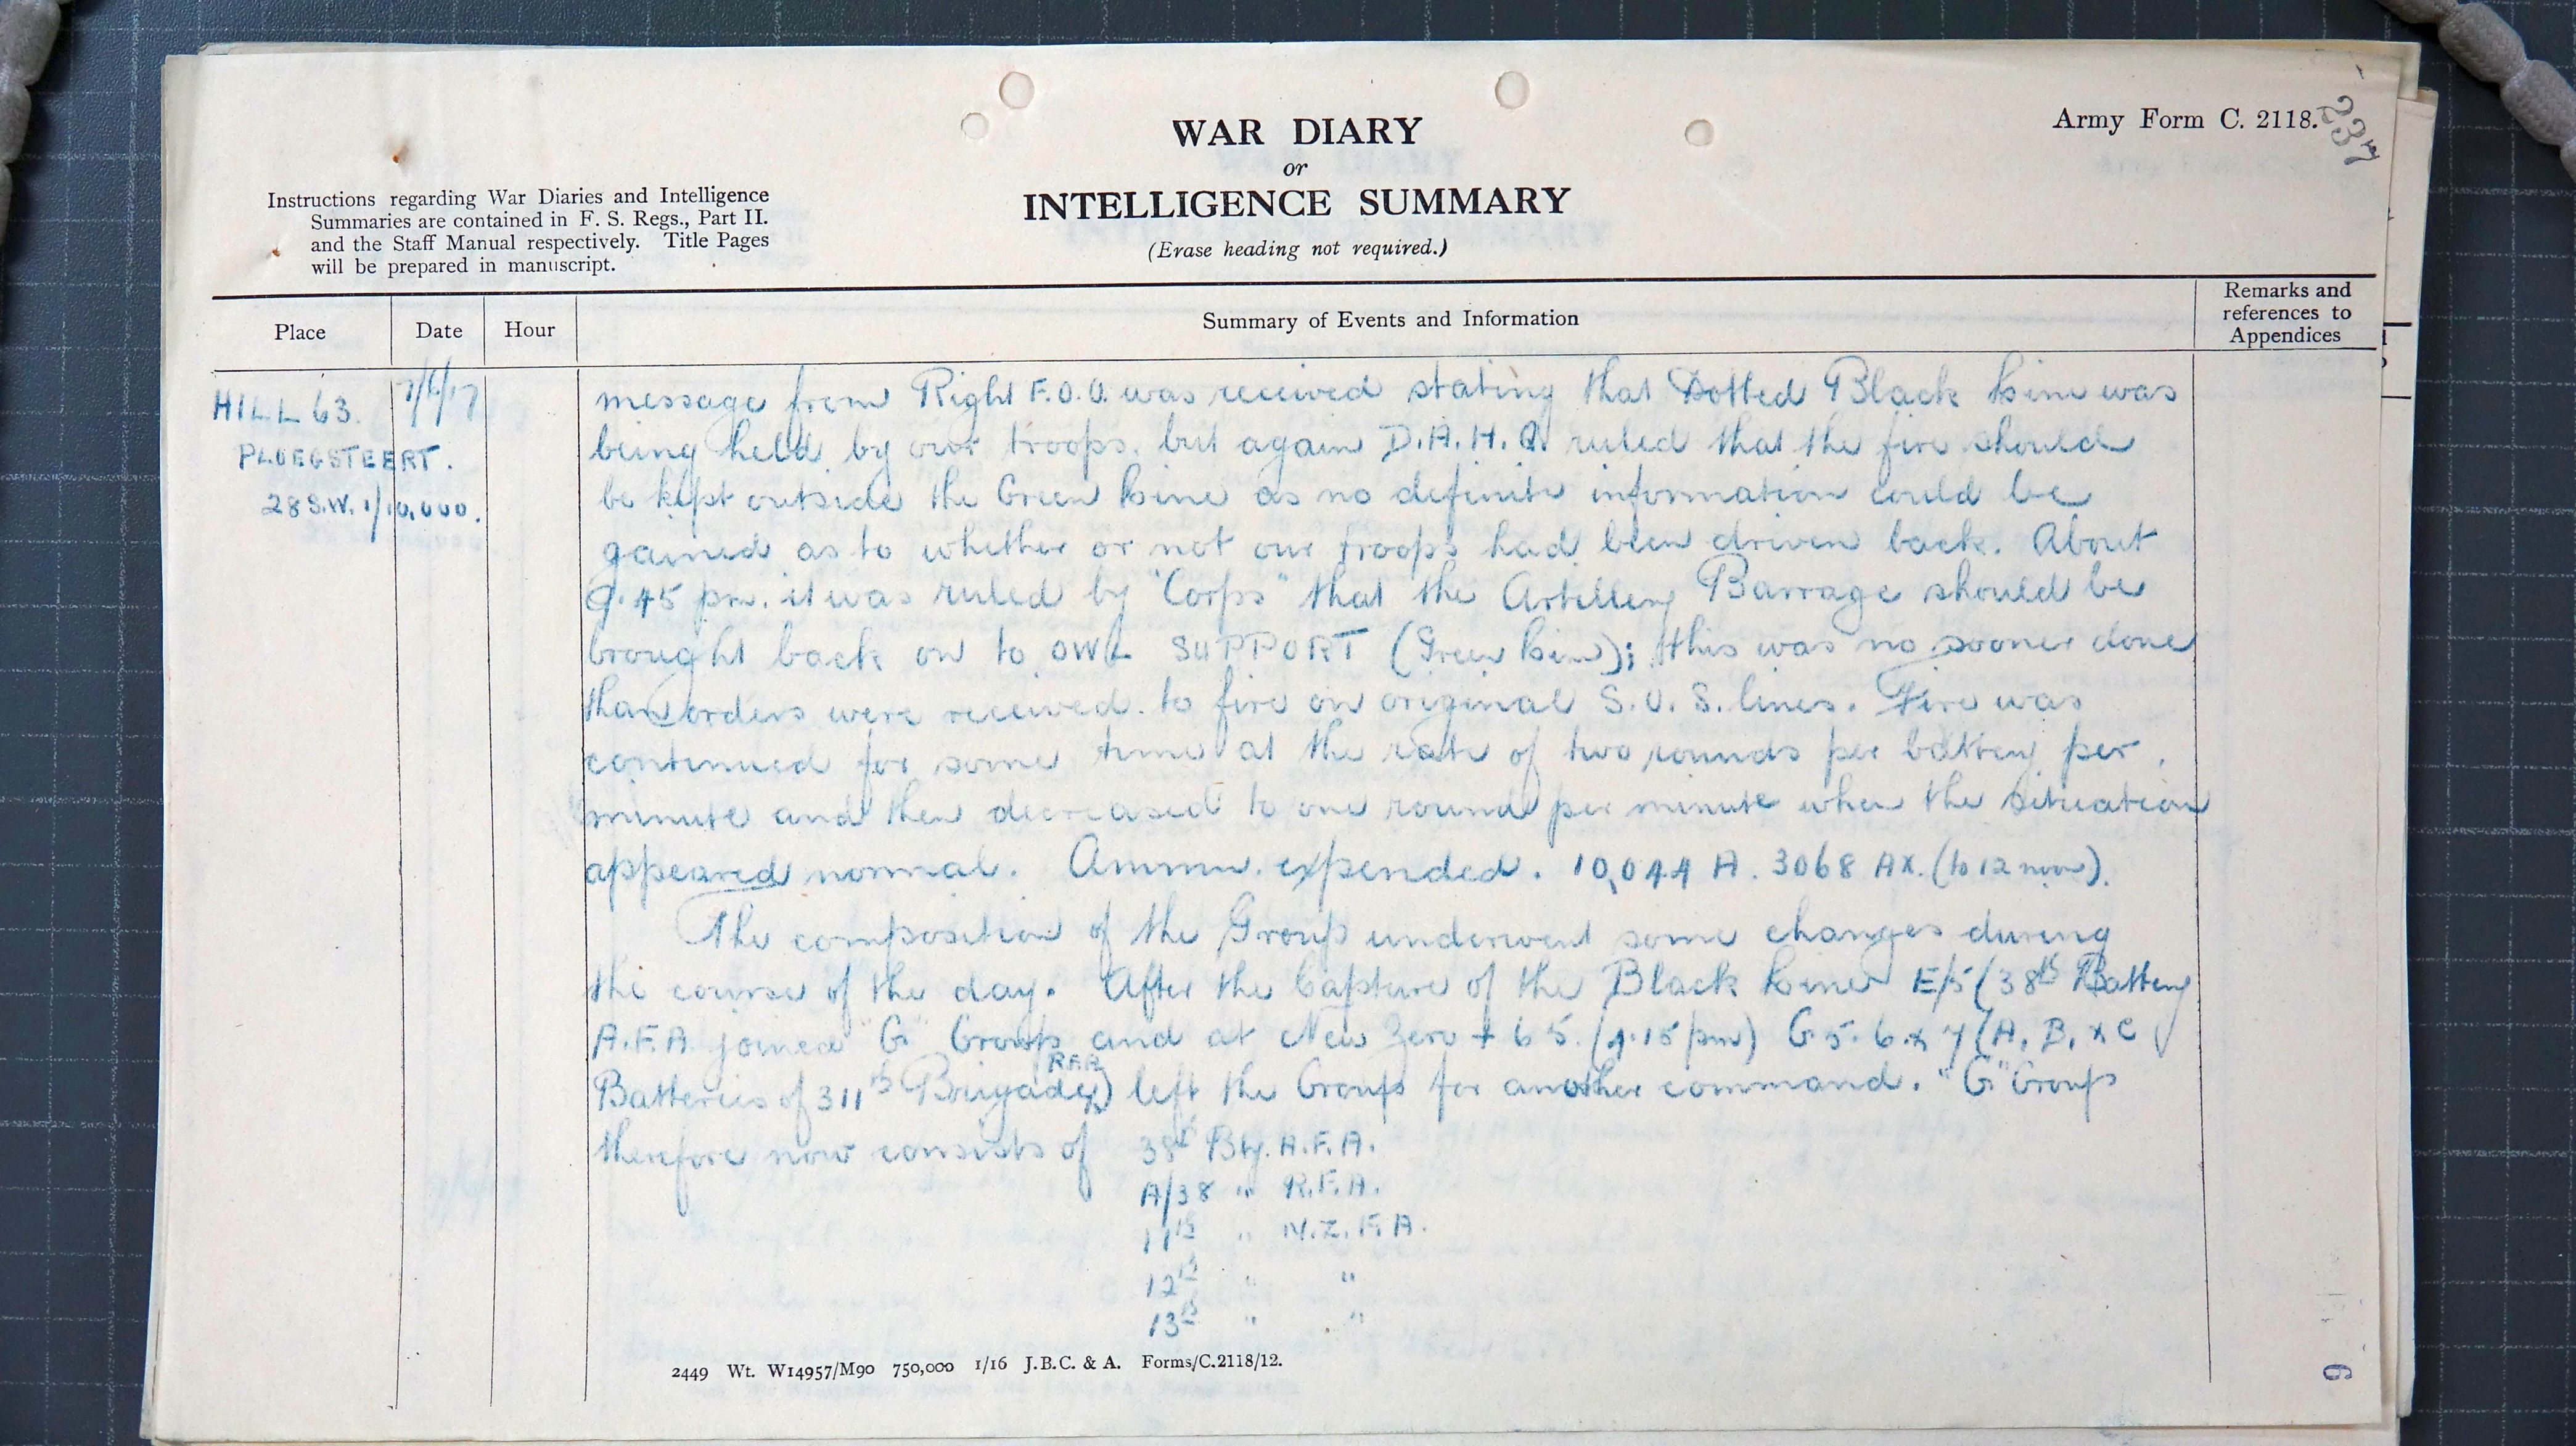 Army Form C. 2118.
237
WAR DIARY
or
INTELLIGENCE SUMMARY
(Erase heading not required.)
Instructions regarding War Diaries and Intelligence
Summaries are contained in F. S. Regs., Part II.
and the Staff Manual respectively. Title Pages
will be prepared in manuscript.
Place
Date
Hour
Summary of Events and Information
Remarks and
references to
Appendices
HILL 63.
PLOEGSTEERT.
28 S.W. 1/10,000.
7/6/17
message from Right F.O.O. was received stating that Dotted Black Line was
being held by our troops, but again D.A.H.Q. ruled that the fire should
be kept outside the Green Line as no definite information could be
gained as to whether or not our troops had been driven back. About
9.45 pm. it was ruled by "Corps" that the Artillery Barrage should be
brought back on to OWL SUPPORT (Green Line); this was no sooner done
than orders were received to fire on original S.O.S. lines. Fire was
continued for some time at the rate of two rounds per battery per
minute and then decreased to one round per minute when the situation
appeared normal. Ammn. expended. 10,044 A. 3068 AX. (to 12 noon).
The composition of the Group underwent some changes during
the course of the day. After the Capture of the Black Line E/5 (38th Battery
A.F.A. joined "G" Group and at New Zero + 65. (4.15 pm) G 5. 6. & 7 (A, B, & C
Batteries of 311th Brigade RFA) left the Group for another command. "G" Group
therefore now consists of 38th Bty. A.F.A.
A/38 " R.F.A.
11th " N.Z.F.A.
12th " "
13th " "
2449 Wt. W14957/M90 750,000 1/16 J.B.C. & A. Forms/C.2118/12.
6